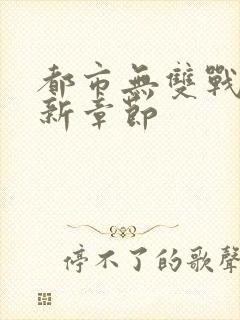 都市無雙戰
新章節
停不了的歌聲